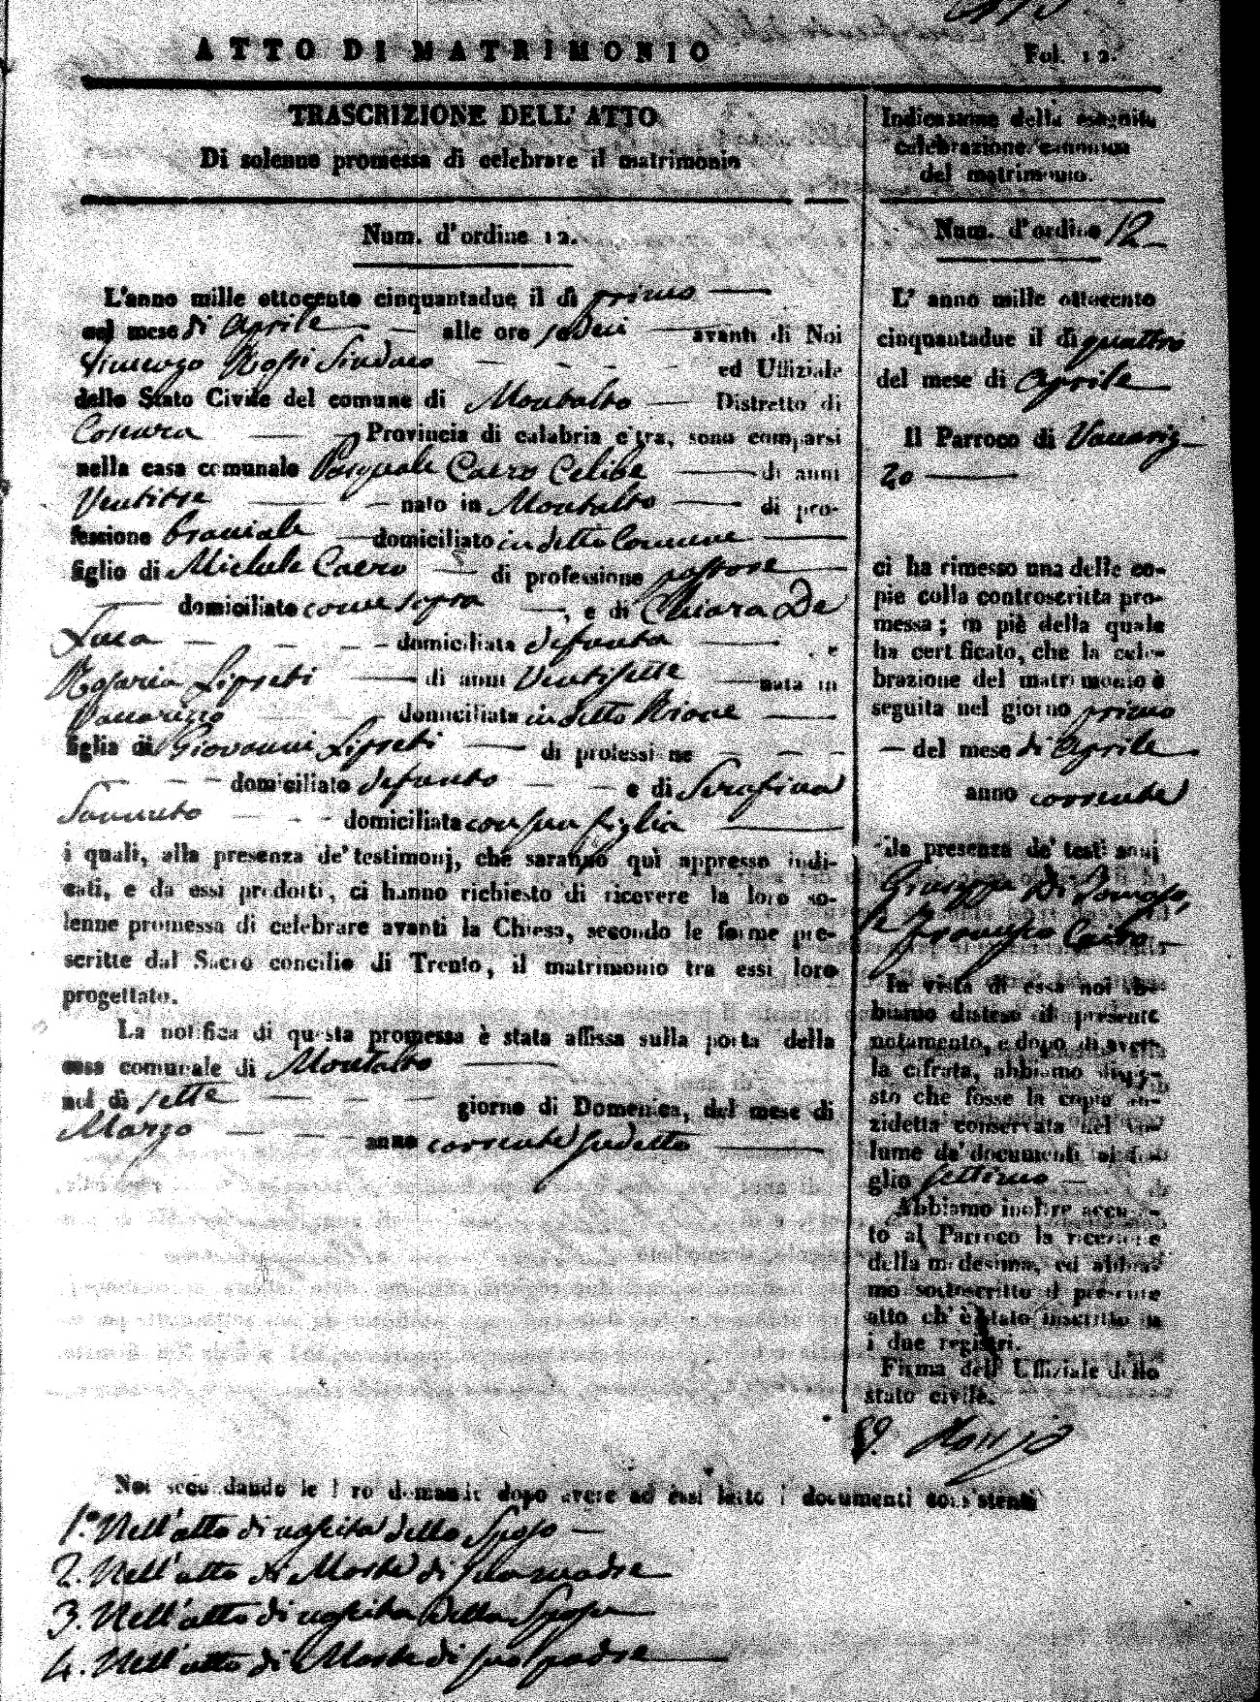 ATTO DI MATRIMONIO
Fol. 12.
TRASCRIZIONE DELL' ATTO
Di solenne promessa di celebrare il matrimonio
Num. d'ordine 12.
L'anno mille ottocento cinquantadue il dì primo
nel mese di Aprile alle ore sedeci avanti di Noi
Vincenzo Rossi Sindaco ed Uffiziale
dello Stato Civile del comune di Montalto Distretto di
Cosenza Provincia di calabria citra, sono comparsi
nella casa comunale Pasquale Caero Celibe di anni
Ventitre nato in Montalto di pro-
fessione braciale domiciliato in detto Comune
figlio di Michele Caero di professione pastore
domiciliato come sopra, e di Chiara De
Luca domiciliata defunta e
Rosaria Lipreti di anni Ventisette nata in
Vaccarizzo domiciliata in detto Rione
figlia di Giovanni Lipreti di professione
domiciliato defunto e di Serafina
domiciliata con sua figlia
i quali, alla presenza de' testimonj, che saranno quì appresso indi-
cati, e da essi prodotti, ci hanno richiesto di ricevere la loro so-
lenne promessa di celebrare avanti la Chiesa, secondo le forme pre-
scritte dal Sacro concilio di Trento, il matrimonio tra essi loro
progettato.
La notifica di questa promessa è stata affissa sulla porta della
casa comunale di Montalto
nel dì sette giorno di Domenica, del mese di
Marzo anno corrente sudetto
Noi secondando le loro domande dopo avere ad essi letto i documenti consistenti
1.° Nell'atto di nascita dello Sposo
2. Nell'atto di Morte di sua madre
3. Nell'atto di nascita della Sposa
4. Nell'atto di Morte di suo padre
Indicazione della seguita
celebrazione canonica
del matrimonio.
Num. d'ordine 12
L' anno mille ottocento
cinquantadue il dì quattro
del mese di Aprile
Il Parroco di Vaccariz-
zo
ci ha rimesso una delle co-
pie colla controscritta pro-
messa; in piè della quale
ha certificato, che la cele-
brazione del matrimonio è
seguita nel giorno primo
del mese di Aprile
anno corrente
alla presenza de' testimonj
Giuseppe Di
e Caero
In vista di essa noi ab-
biamo disteso il presente
notamento, e dopo di averla
la cifrata, abbiamo dispo-
sto che fosse la copia an-
zidetta conservata nel vo-
lume de' documenti al fo-
glio settimo
Abbiamo inoltre accusa-
to al Parroco la ricezione
della medesima, ed abbia-
mo sottoscritto il presente
atto ch' è stato inscritto in
i due registri.
Firma dell' Uffiziale dello
stato civile.